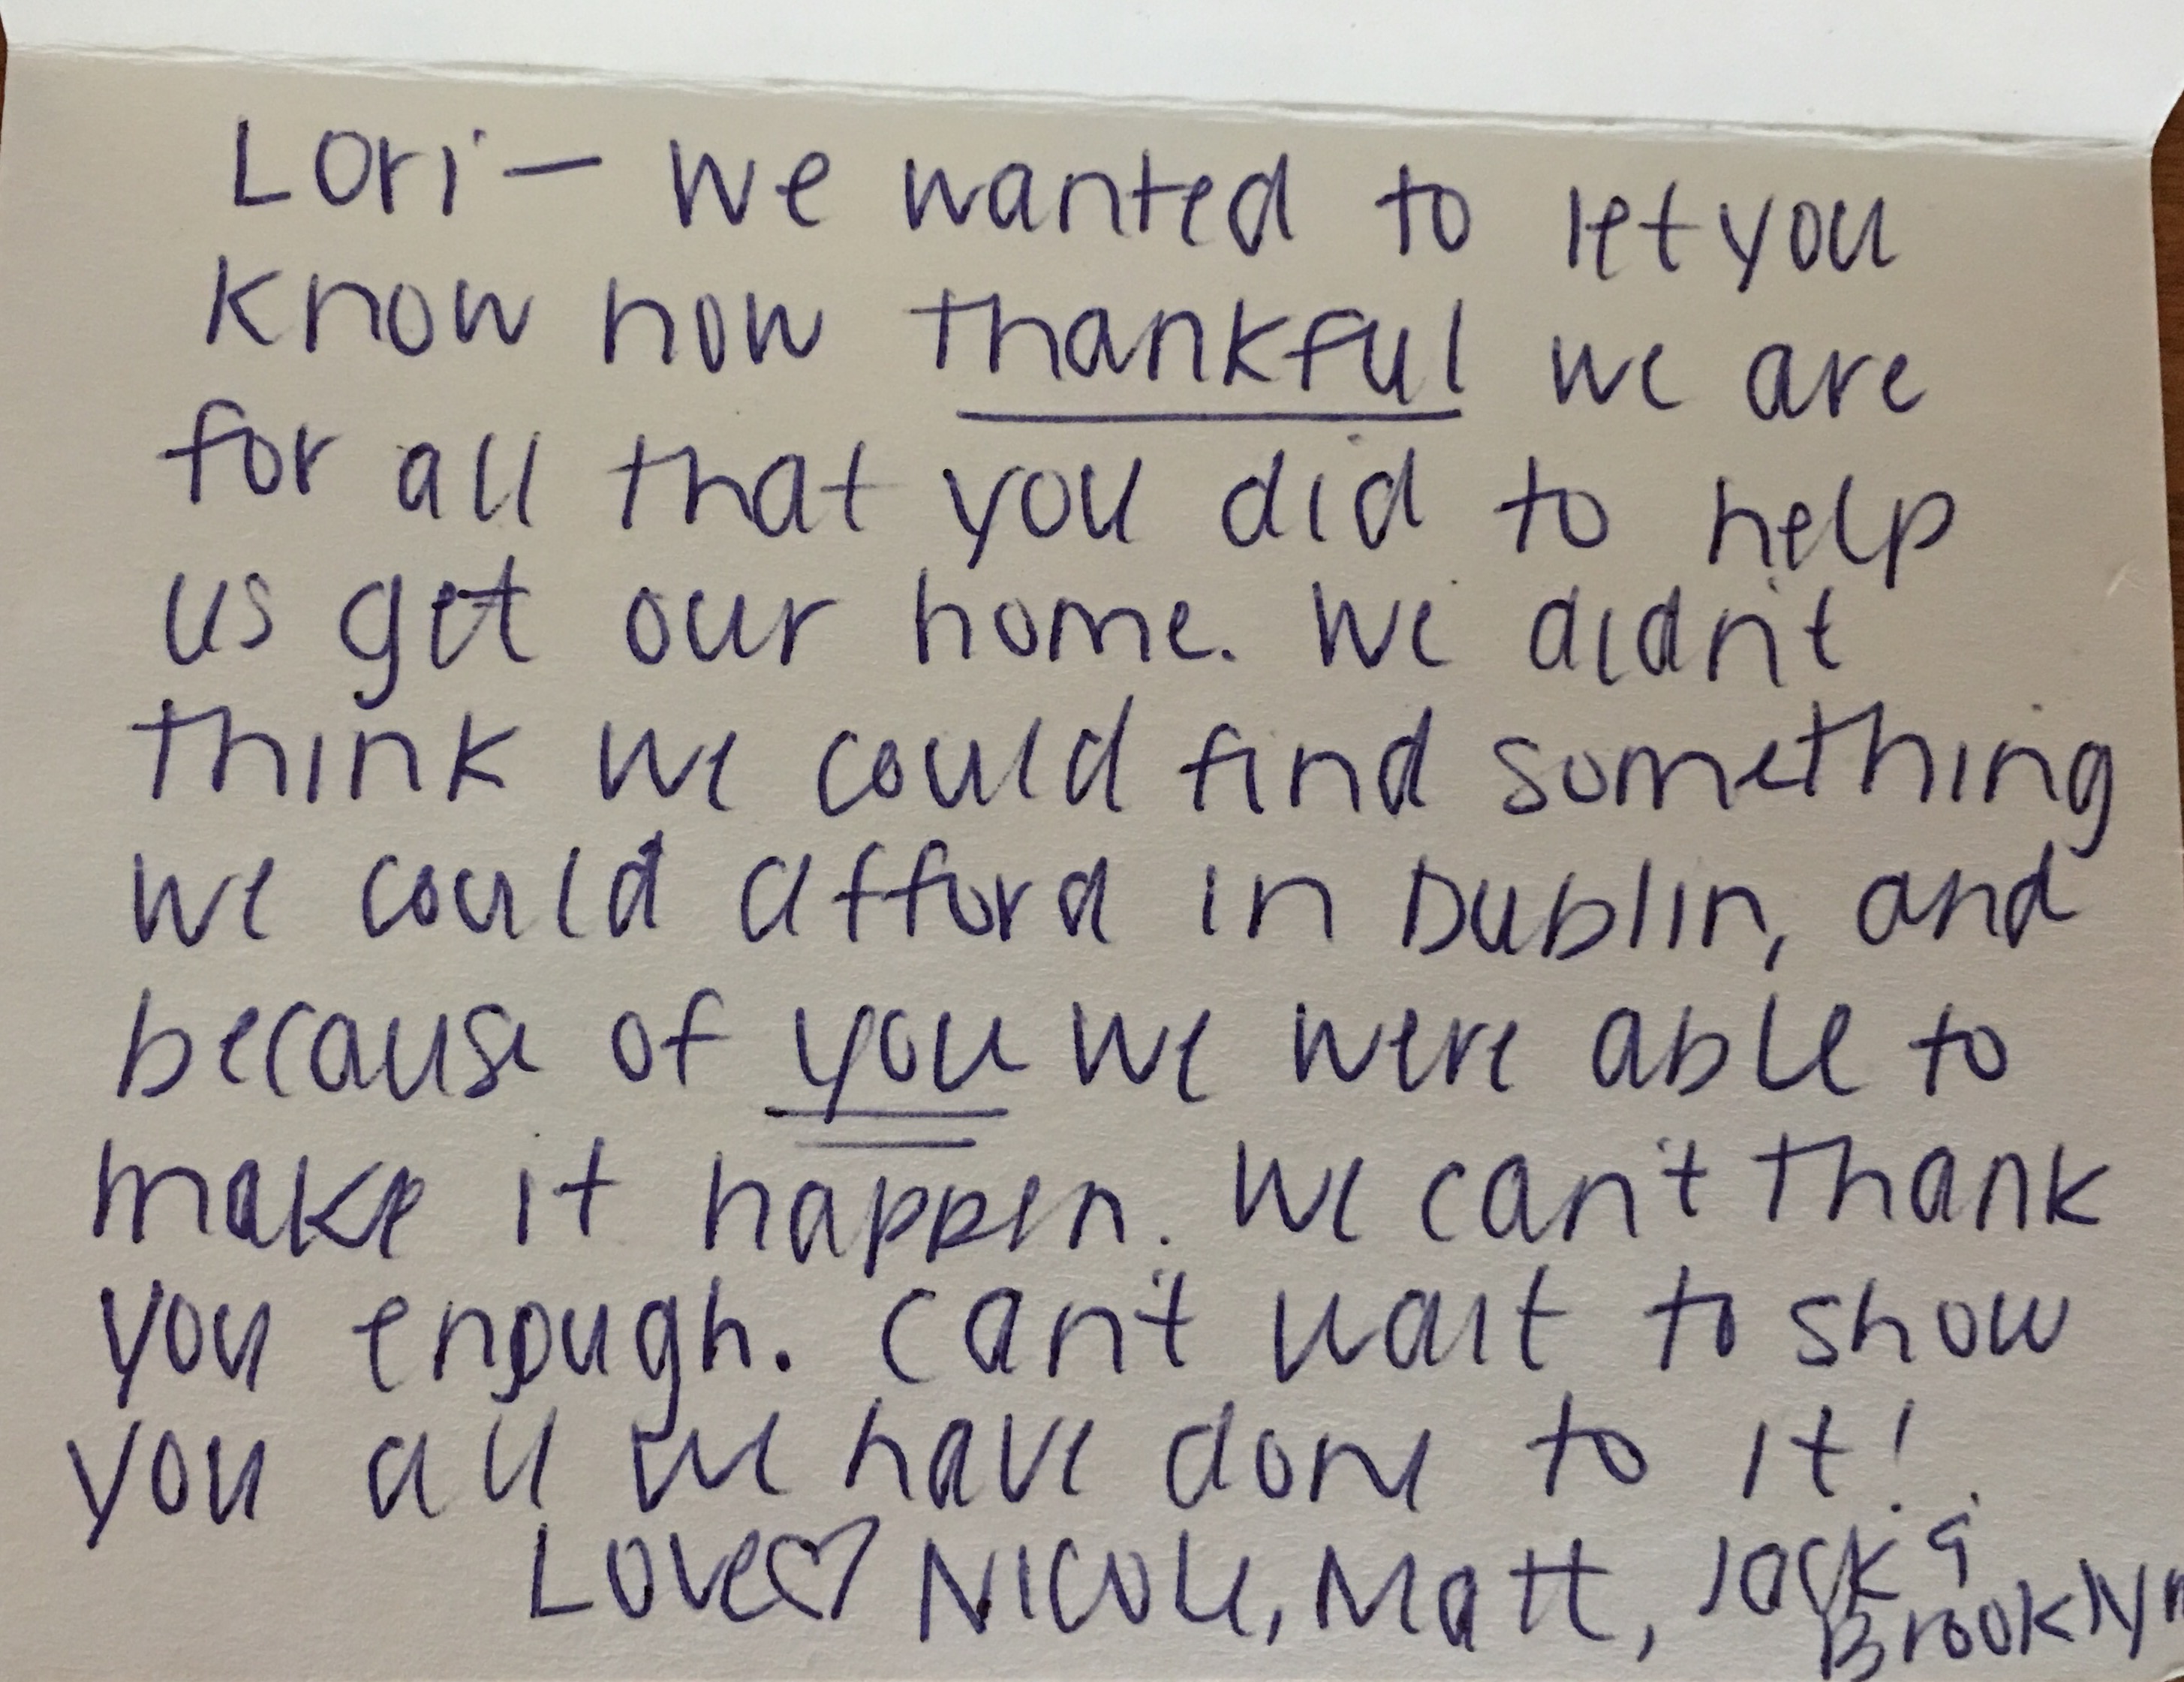 Lori — We wanted to let you
know how thankful we are
for all that you did to help
us get our home. We didn't
think we could find something
we could afford in Dublin, and
because of you we were able to
make it happen. We can't thank
you enough. Can't wait to show
you all we have done to it!
Love ♡ Nicole, Matt, Jack &
Brooklyn